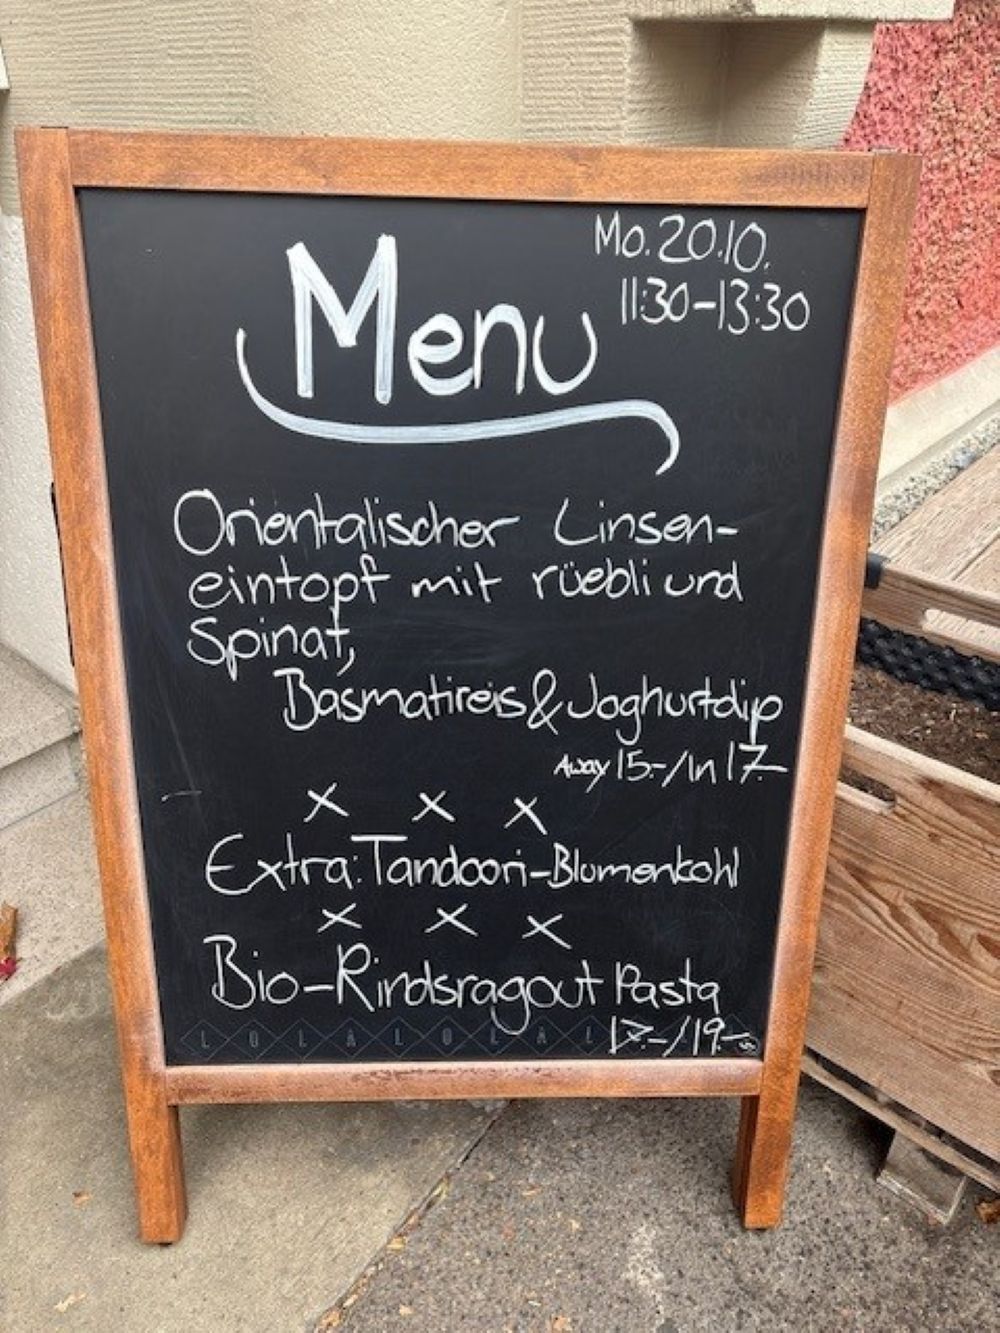 Mo. 20.10.
11:30-13:30
Menu
Orientalischer Linsen-
eintopf mit rüebli und
Spinat,
Basmatireis & Joghurtdip
Away 15.-/In 17.-
x x x
Extra: Tandoori-Blumenkohl
x x x
Bio-Rindsragout Pasta
17.-/19.-
LOLALOLAL